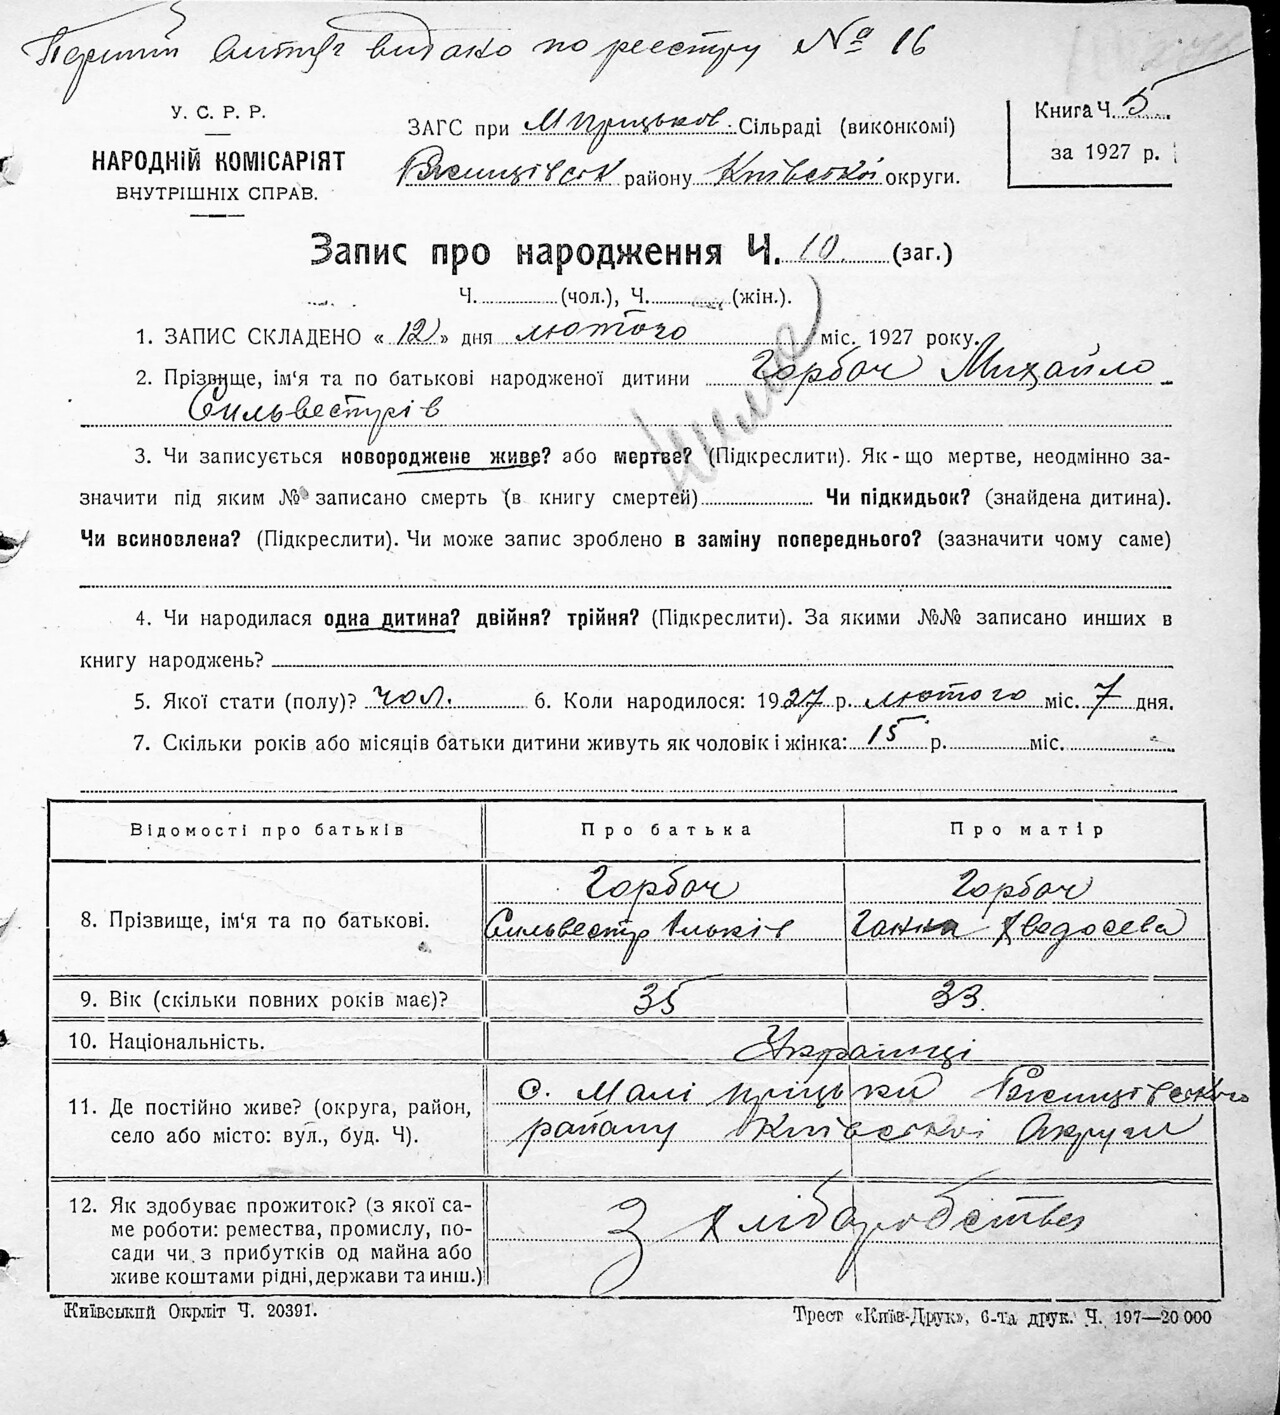 Перший витяг видано по реєстру № 16
У. С. Р. Р.
НАРОДНІЙ КОМІСАРІЯТ
ВНУТРІШНІХ СПРАВ.
ЗАГС при М Пріцьков. Сільраді (виконкомі)
Ржищівськ району Київської округи.
Книга Ч. 5
за 1927 р.
Запис про народження Ч. 10 (заг.)
Ч. (чол.), Ч. (жін.).
1. ЗАПИС СКЛАДЕНО « 12 » дня лютого міс. 1927 року.
2. Прізвище, ім'я та по батькові народженої дитини Горбач Михайло
Сильвестрів
3. Чи записується новороджене живе? або мертве? (Підкреслити). Як-що мертве, неодмінно за-
значити під яким № записано смерть (в книгу смертей) Чи підкидьок? (знайдена дитина).
Чи всиновлена? (Підкреслити). Чи може запис зроблено в заміну попереднього? (зазначити чому саме)
4. Чи народилася одна дитина? двійня? трійня? (Підкреслити). За якими №№ записано инших в
книгу народжень?
5. Якої стати (полу)? чол. 6. Коли народилося: 1927 р. лютого міс. 7 дня.
7. Скільки років або місяців батьки дитини живуть як чоловік і жінка: 15 р. міс.
Відомості про батьків Про батька Про матір
Горбач Горбач
8. Прізвище, ім'я та по батькові. Сильвестр Ільків Ганна Хведосєва
9. Вік (скільки повних років має)? 35 33.
10. Національність. Українці
11. Де постійно живе? (округа, район, село або місто: вул., буд. Ч). с. Малі Пріцьки Ржищівського
району Київської Округи
12. Як здобуває прожиток? (з якої са-
ме роботи: ремества, промислу, по-
сади чи з прибутків од майна або
живе коштами рідні, держави та инш.)
З хліборобства
Київський Окрліт Ч. 20391.
Трест «Київ-Друк», 6-та друк. Ч. 197—20 000